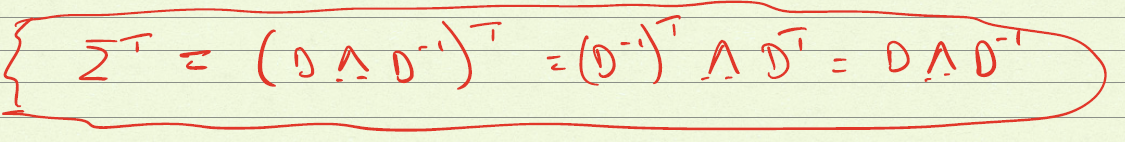 Σ^T = (D Λ D^-1)^T = (D^-1)^T Λ D^T = D Λ D^-1